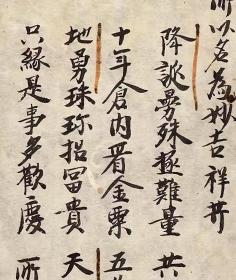 所以名為妙吉祥𦬇
降誕曼殊極難量 廿
十年倉內看金粟 五
地勇珠珍招冨貴 天
只緣是事多歡慶 所